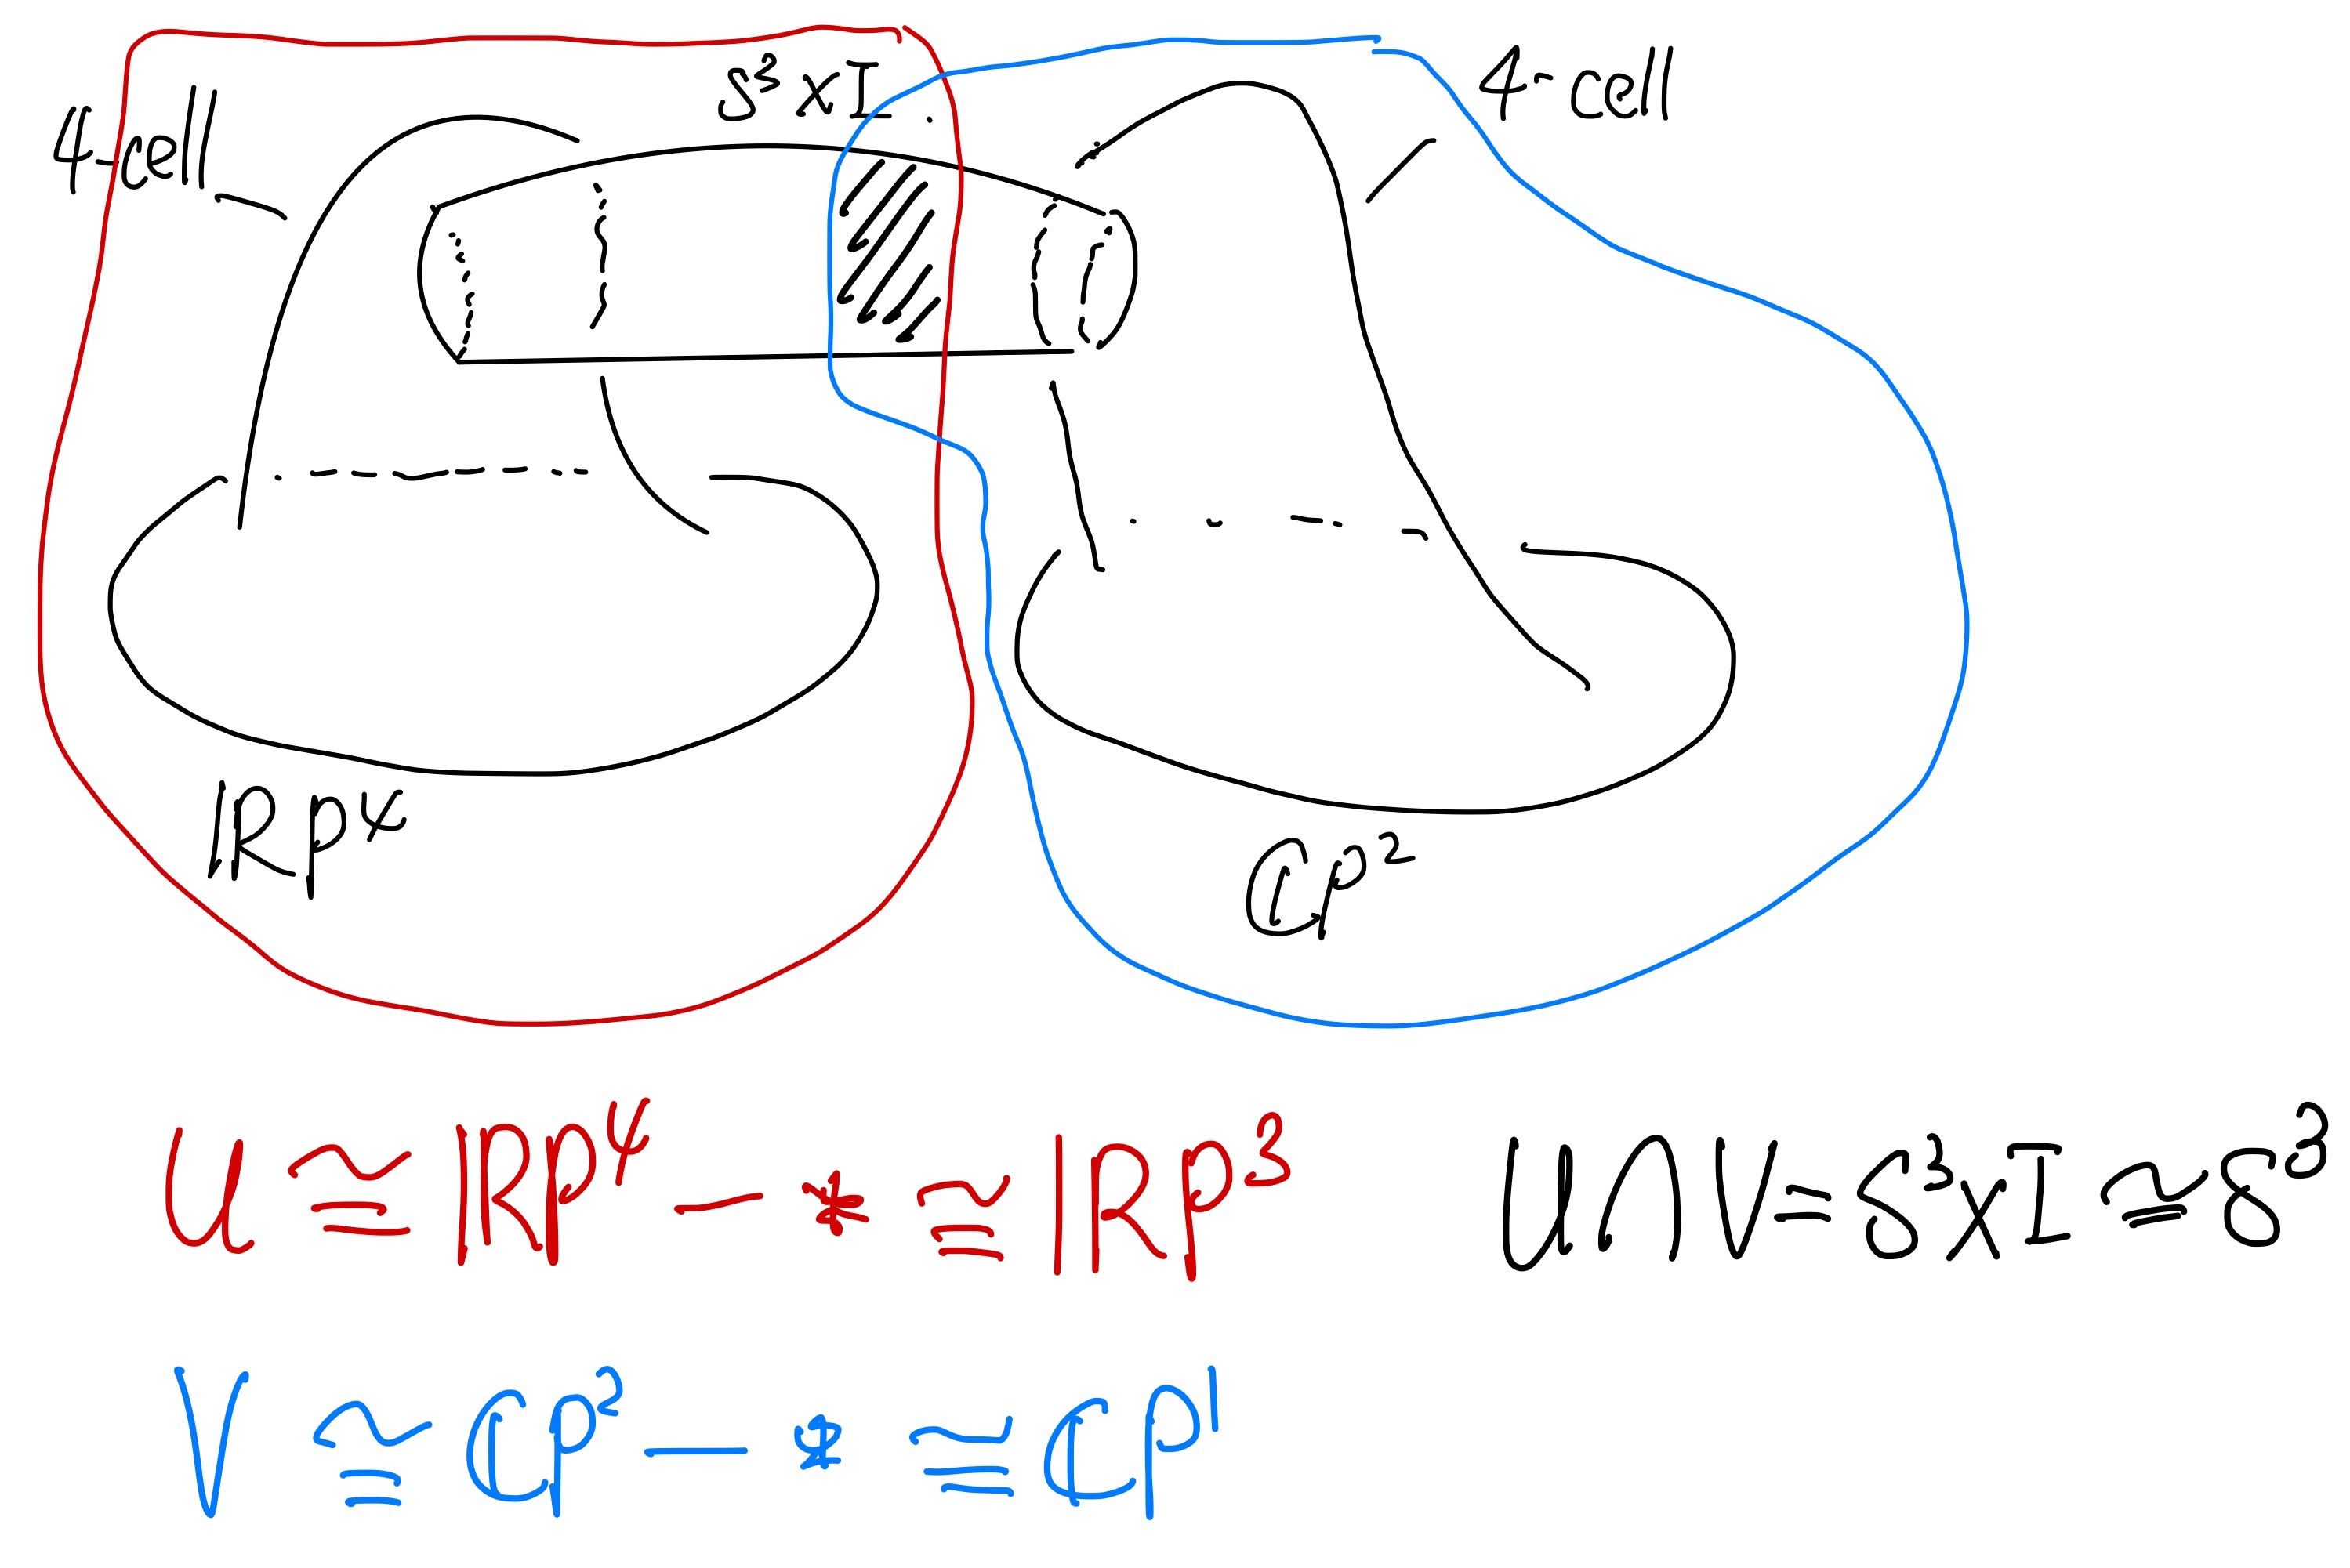 4-cell
S³×I
4-cell
RP⁴
CP²
U ≅ RP⁴ − * ≅ RP³
U∩V = S³×I ≅ S³
V ≅ CP² − * ≅ CP¹